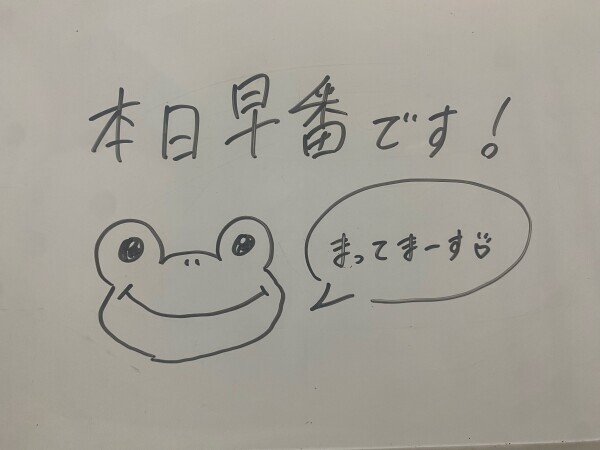 本日早番です!
まってまーす